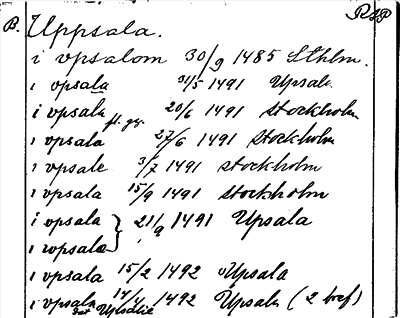 B. Uppsala. RAP
i vpsalom 30/9 1485 Sthlm.
i vpsala 31/5 1491 Upsala
i vpsala fl. gg. 20/6 1491 Stockholm
i vpsala 27/6 1491 Stockholm
i vpsale 3/7 1491 Stockholm
i vpsala 15/9 1491 Stockholm
i vpsala } 21/9 1491 Upsala
i wpsala
i vpsala 15/2 1492 Upsala
i vpsala 14/4 1492 Upsala (2 bref)